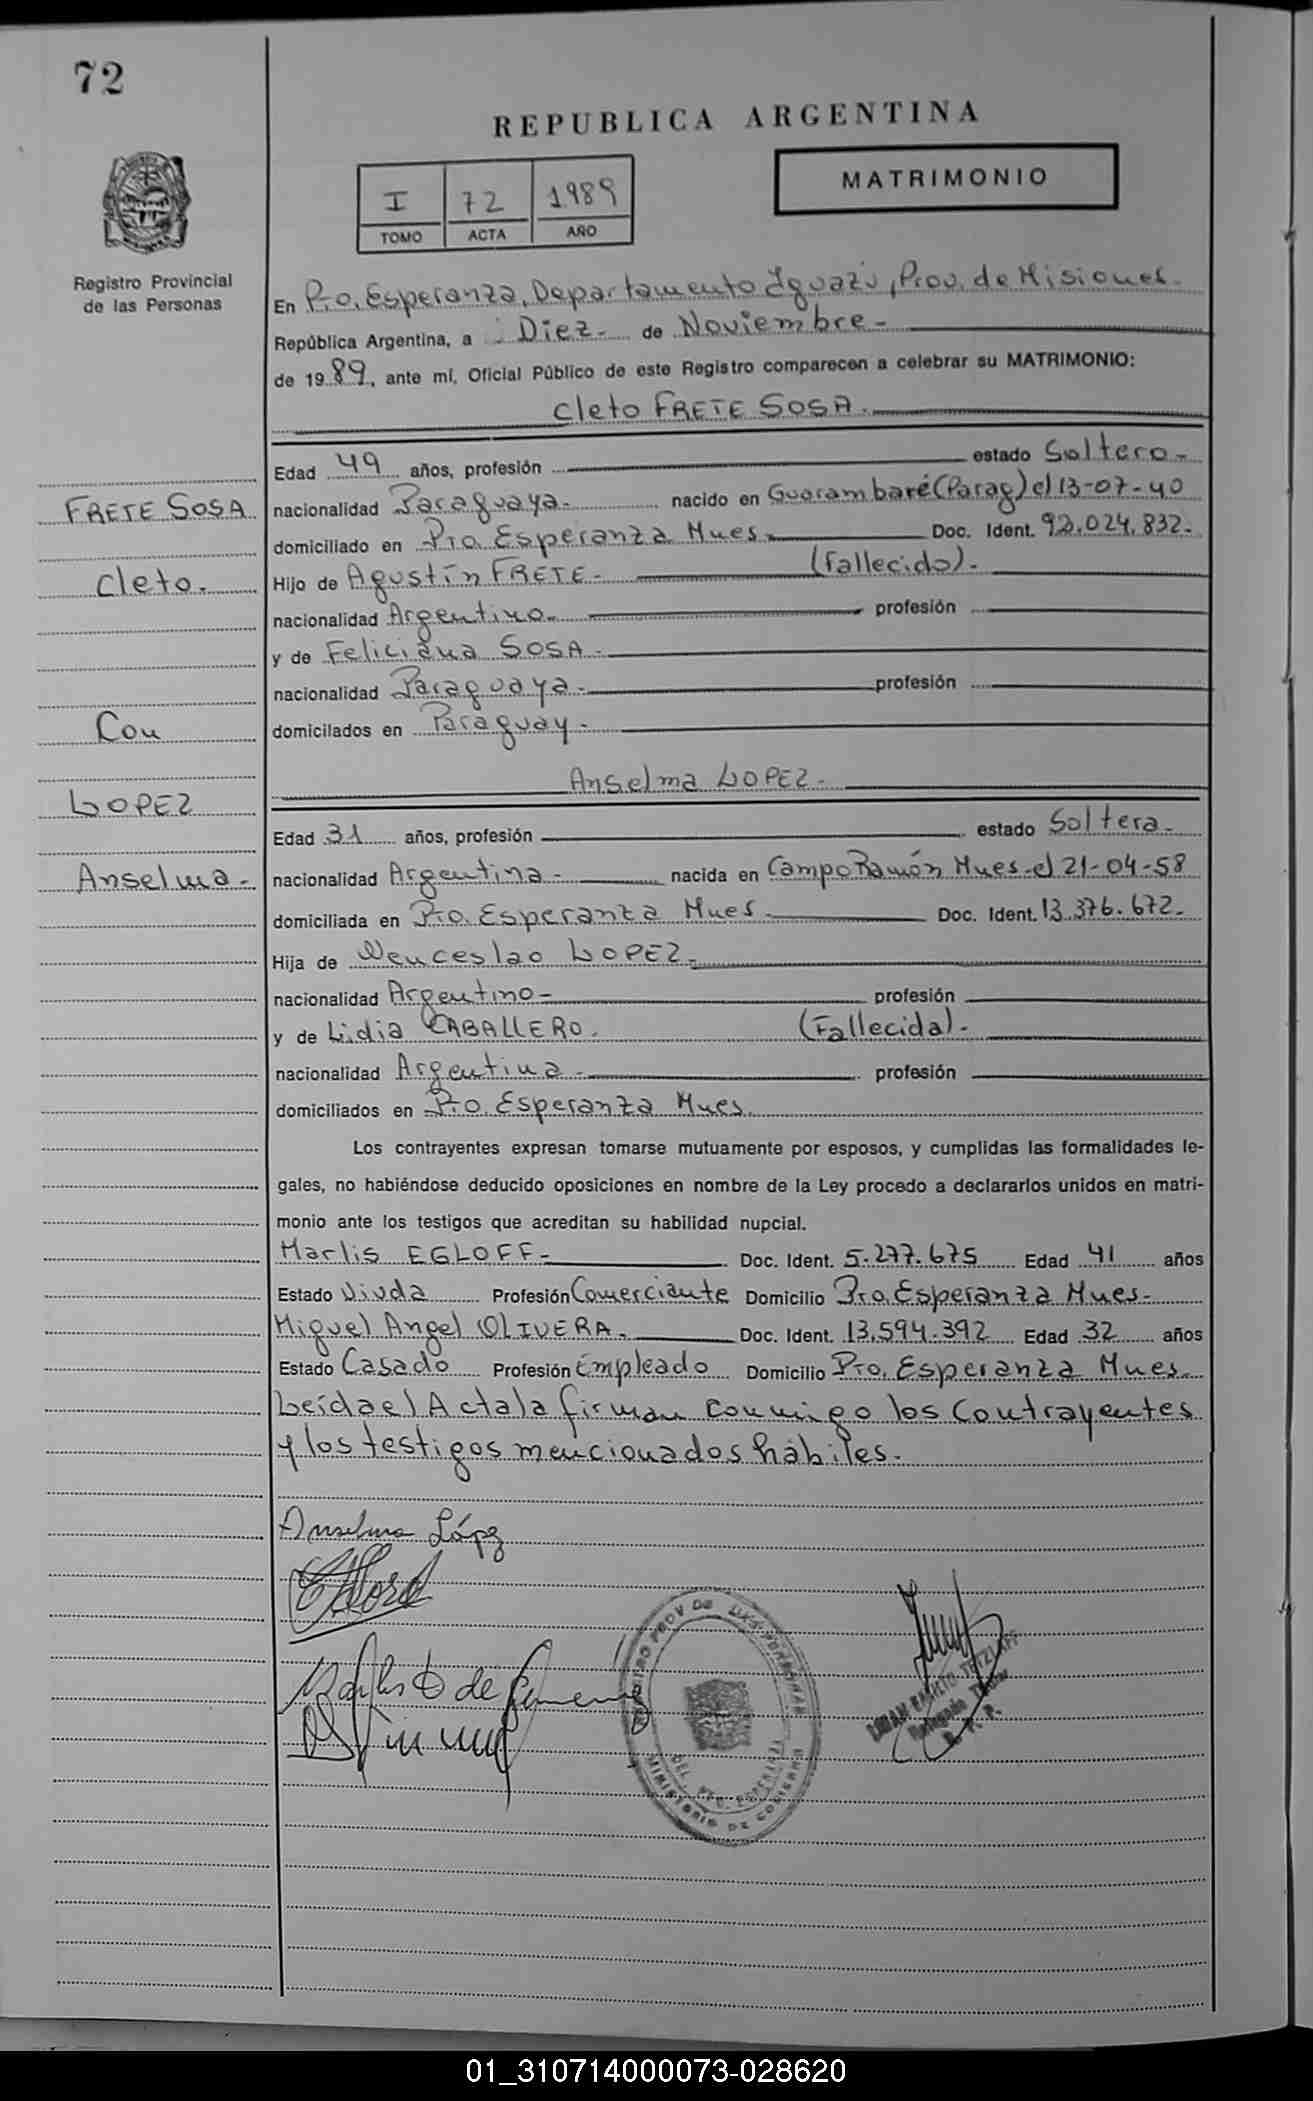 72
REPUBLICA ARGENTINA
I 72 1989
TOMO ACTA AÑO
MATRIMONIO
Registro Provincial
de las Personas
En Pto. Esperanza, Departamento Iguazú, Prov. de Misiones.
República Argentina, a Diez- de Noviembre-
de 1989, ante mí, Oficial Público de este Registro comparecen a celebrar su MATRIMONIO:
Cleto FRETE SOSA.
Edad 49 años, profesión estado Soltero-
FRETE SOSA
nacionalidad Paraguaya- nacido en Guarambaré (Parag) el 13-07-40
domiciliado en Pto. Esperanza Mnes. Doc. Ident. 92.024.832-
Cleto.
Hijo de Agustín FRETE- (Fallecido).
nacionalidad Argentino- profesión
y de Feliciana SOSA-
nacionalidad Paraguaya- profesión
Con
domicilados en Paraguay-
LOPEZ
Anselma LOPEZ-
Edad 31 años, profesión estado Soltera-
Anselma-
nacionalidad Argentina- nacida en Campo Ramón Mnes. el 21-04-58
domiciliada en Pto. Esperanza Mnes. Doc. Ident. 13.376.672-
Hija de Wenceslao LOPEZ-
nacionalidad Argentino- profesión
y de Lidia CABALLERO. (Fallecida)-
nacionalidad Argentina- profesión
domiciliados en Pto. Esperanza Mnes.
Los contrayentes expresan tomarse mutuamente por esposos, y cumplidas las formalidades le-
gales, no habiéndose deducido oposiciones en nombre de la Ley procedo a declararlos unidos en matri-
monio ante los testigos que acreditan su habilidad nupcial.
Marlis EGLOFF- Doc. Ident. 5.277.675 Edad 41 años
Estado Viuda Profesión Comerciante Domicilio Pto. Esperanza Mnes-
Miguel Angel OLIVERA. Doc. Ident. 13.594.392 Edad 32 años
Estado Casado Profesión Empleado Domicilio Pto. Esperanza Mnes.
Leída el Acta la firman conmigo los Contrayentes
y los testigos mencionados hábiles.
Anselma López
01_310714000073-028620